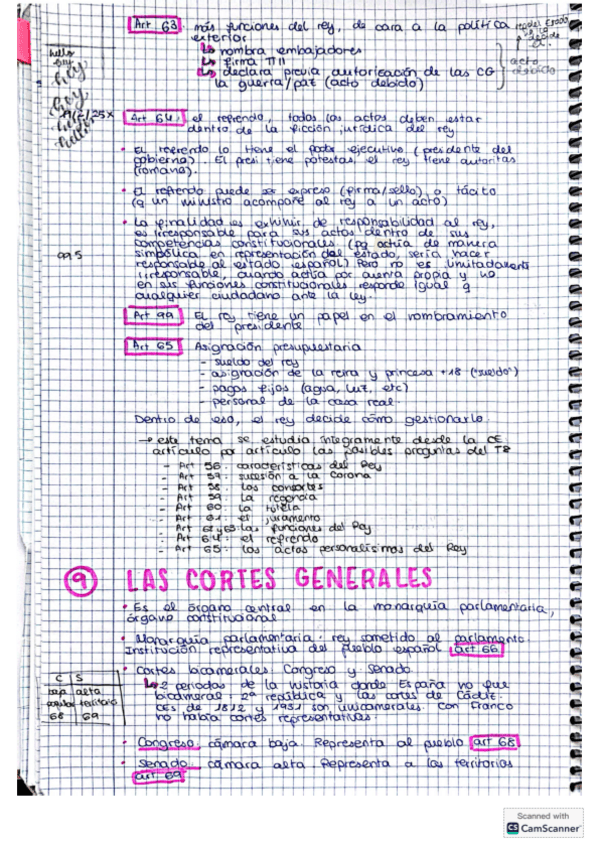 Art 63. más funciones del rey, de cara a la política
exterior
nombra embajadores
firma TTII
declara previa autorización de las CG
la guerra/paz (acto debido)
acto
debido
hello
hey
19/2/25 x
Art 64. el refrendo, todos los actos deben estar
dentro de la ficción jurídica del rey
• El refrendo lo tiene el poder ejecutivo (presidente del
gobierno). El presi tiene potestas, el rey tiene autoritas
(romana).
• El refrendo puede ser expreso (firma/sello) o tácito
(q un ministro acompañe al rey a un acto)
• La finalidad es eximir de responsabilidad al rey,
es irresponsable para sus actos dentro de sus
competencias constitucionales (pq actúa de manera
simbólica en representación del estado, sería hacer
responsable al estado español) Pero no es ilimitadamente
irresponsable, cuando actúa por cuenta propia y no
en sus funciones constitucionales responde igual q
cualquier ciudadano ante la ley.
Art 99 El rey tiene un papel en el nombramiento
del presidente
Art 65 Asignación presupuestaria
- sueldo del rey
- asignación de la reina y princesa +18 ("sueldo")
- pagos fijos (agua, luz, etc)
- personal de la casa real.
Dentro de eso, el rey decide cómo gestionarlo.
→ este tema se estudia íntegramente desde la CE
artículo por artículo las posibles preguntas del T8
- Art 56: características del Rey
- Art 57: sucesión a la Corona
- Art 58: los consortes
- Art 59: la regencia
- Art 60: la tutela
- Art 61: el juramento
- Art 62 y 63: las funciones del Rey
- Art 64: el refrendo
- Art 65: los actos personalísimos del Rey
9 LAS CORTES GENERALES
• Es el órgano central en la monarquía parlamentaria,
órgano constitucional
• Monarquía parlamentaria: rey sometido al parlamento.
Institución representativa del pueblo español art 66
• Cortes bicamerales: Congreso y Senado.
2 periodos de la historia donde España no fue
bicameral: 2ª república y las cortes de Cádiz.
CEs de 1812 y 1931 son unicamerales. Con Franco
no había cortes representativas.
C S
baja alta
popular territorio
68 69
• Congreso: cámara baja. Representa al pueblo art 68
• Senado: cámara alta. Representa a los territorios
art 69
Scanned with
CS CamScanner